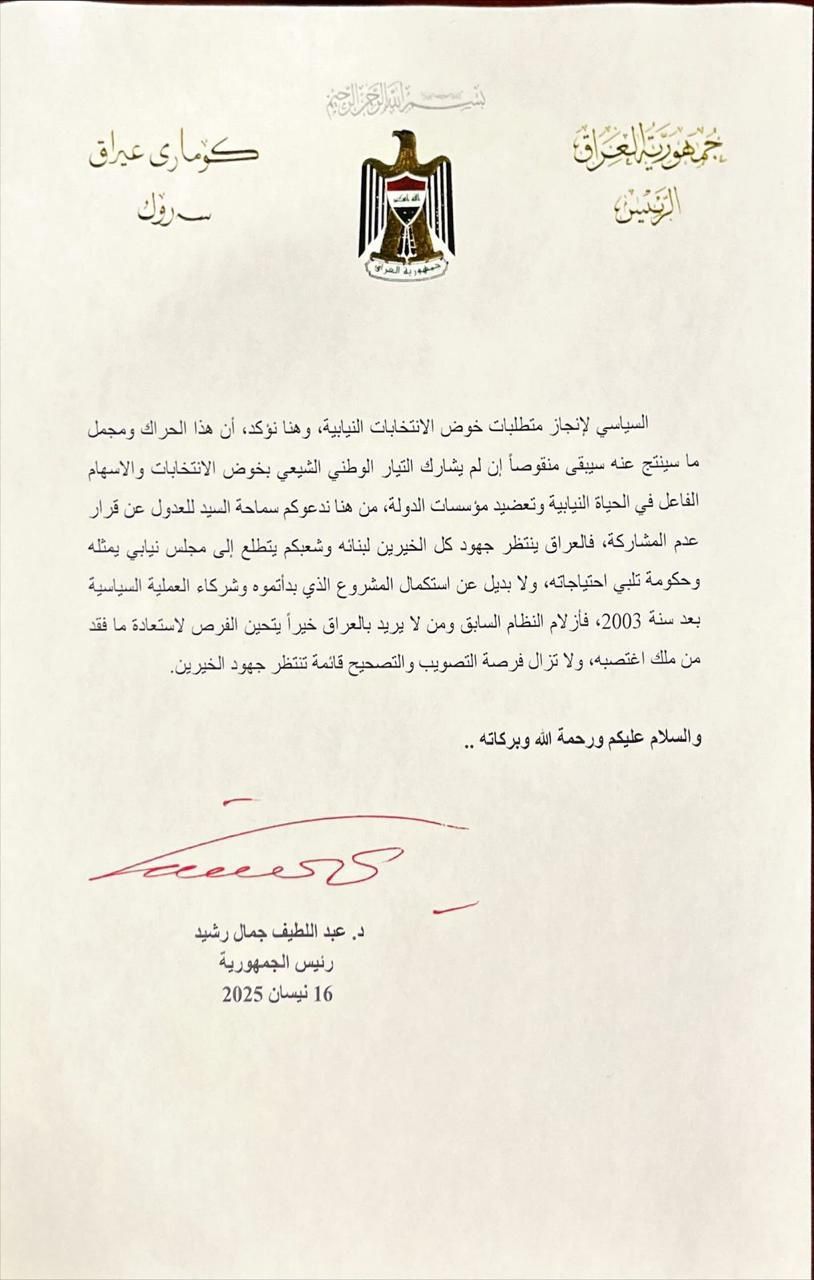 بسم الله الرحمن الرحيم
جمهورية العراق
الرئيس
كوماری عیراق
سەرۆك
الله اكبر
جمهورية العراق
السياسي لإنجاز متطلبات خوض الانتخابات النيابية، وهنا نؤكد، أن هذا الحراك ومجمل
ما سينتج عنه سيبقى منقوصاً إن لم يشارك التيار الوطني الشيعي بخوض الانتخابات والاسهام
الفاعل في الحياة النيابية وتعضيد مؤسسات الدولة، من هنا ندعوكم سماحة السيد للعدول عن قرار
عدم المشاركة، فالعراق ينتظر جهود كل الخيرين لبنائه وشعبكم يتطلع إلى مجلس نيابي يمثله
وحكومة تلبي احتياجاته، ولا بديل عن استكمال المشروع الذي بدأتموه وشركاء العملية السياسية
بعد سنة 2003، فأزلام النظام السابق ومن لا يريد بالعراق خيراً يتحين الفرص لاستعادة ما فقد
من ملك اغتصبه، ولا تزال فرصة التصويب والتصحيح قائمة تنتظر جهود الخيرين.
والسلام عليكم ورحمة الله وبركاته ..
د. عبد اللطيف جمال رشيد
رئيس الجمهورية
16 نيسان 2025